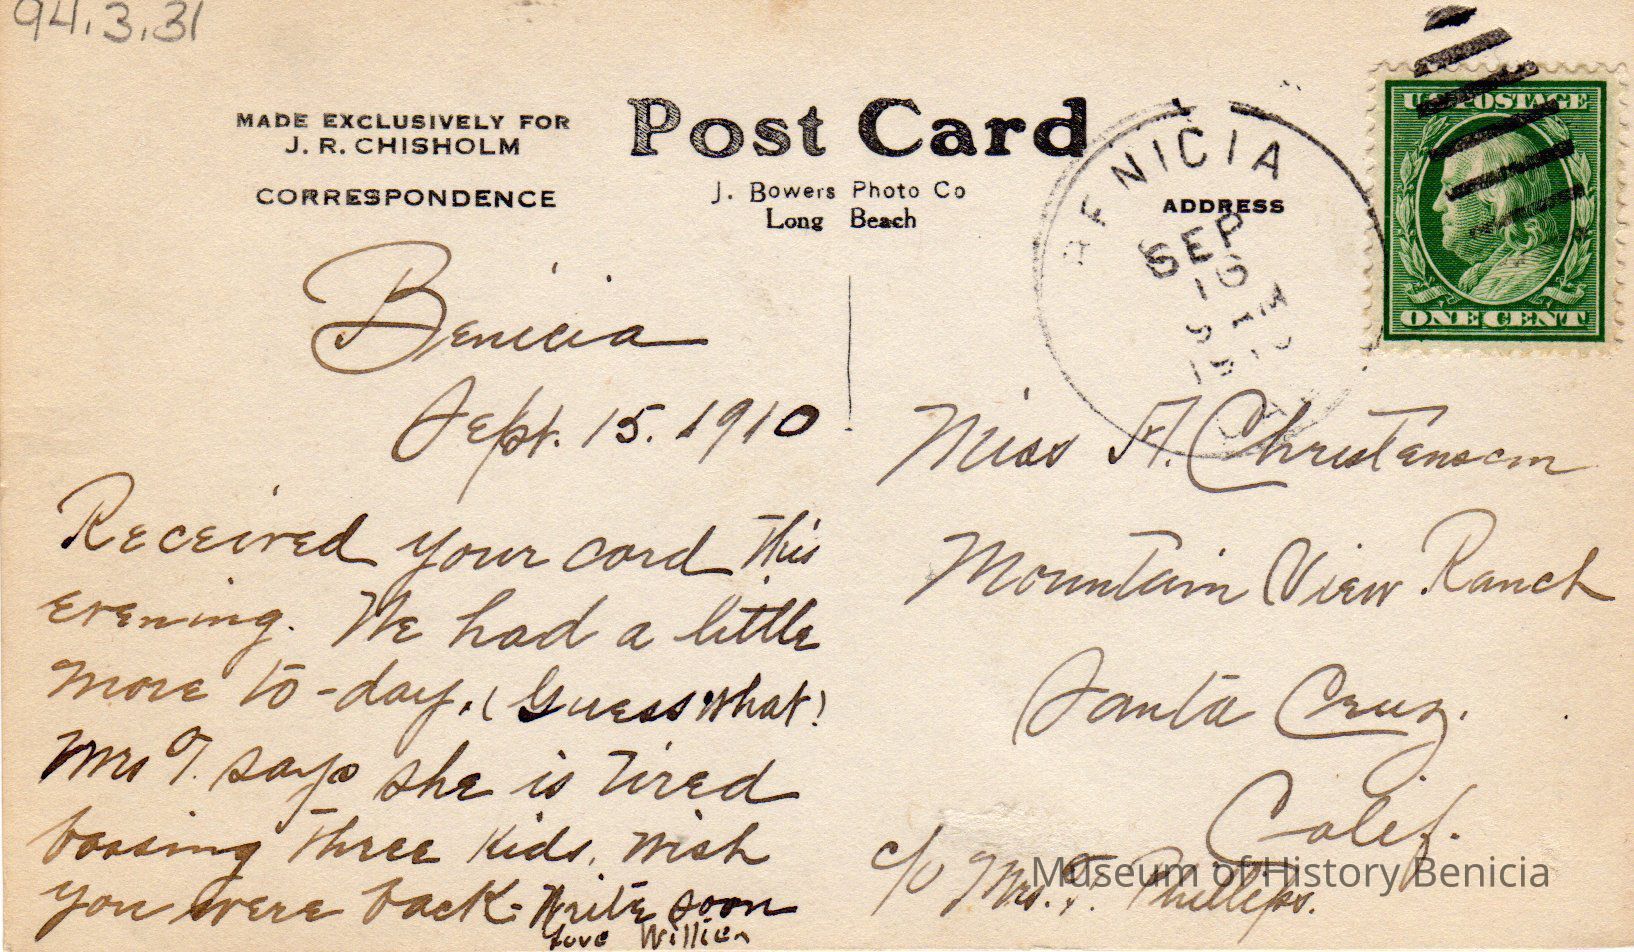 94.3.31
MADE EXCLUSIVELY FOR
J. R. CHISHOLM
CORRESPONDENCE
Post Card
J. Bowers Photo Co
Long Beach
BENICIA
SEP
ADDRESS
U.S. POSTAGE
ONE CENT
Benicia
Sept. 15. 1910
Received your card this
evening. We had a little
more to-day. (Guess what!
Mrs T. says she is tired
bossing three kids. Wish
you were back- Write soon
Love Willien
Miss H. Christensen
Mountain View Ranch
Santa Cruz.
Calif.
c/o Mrs. F. Phillips.
Museum of History Benicia